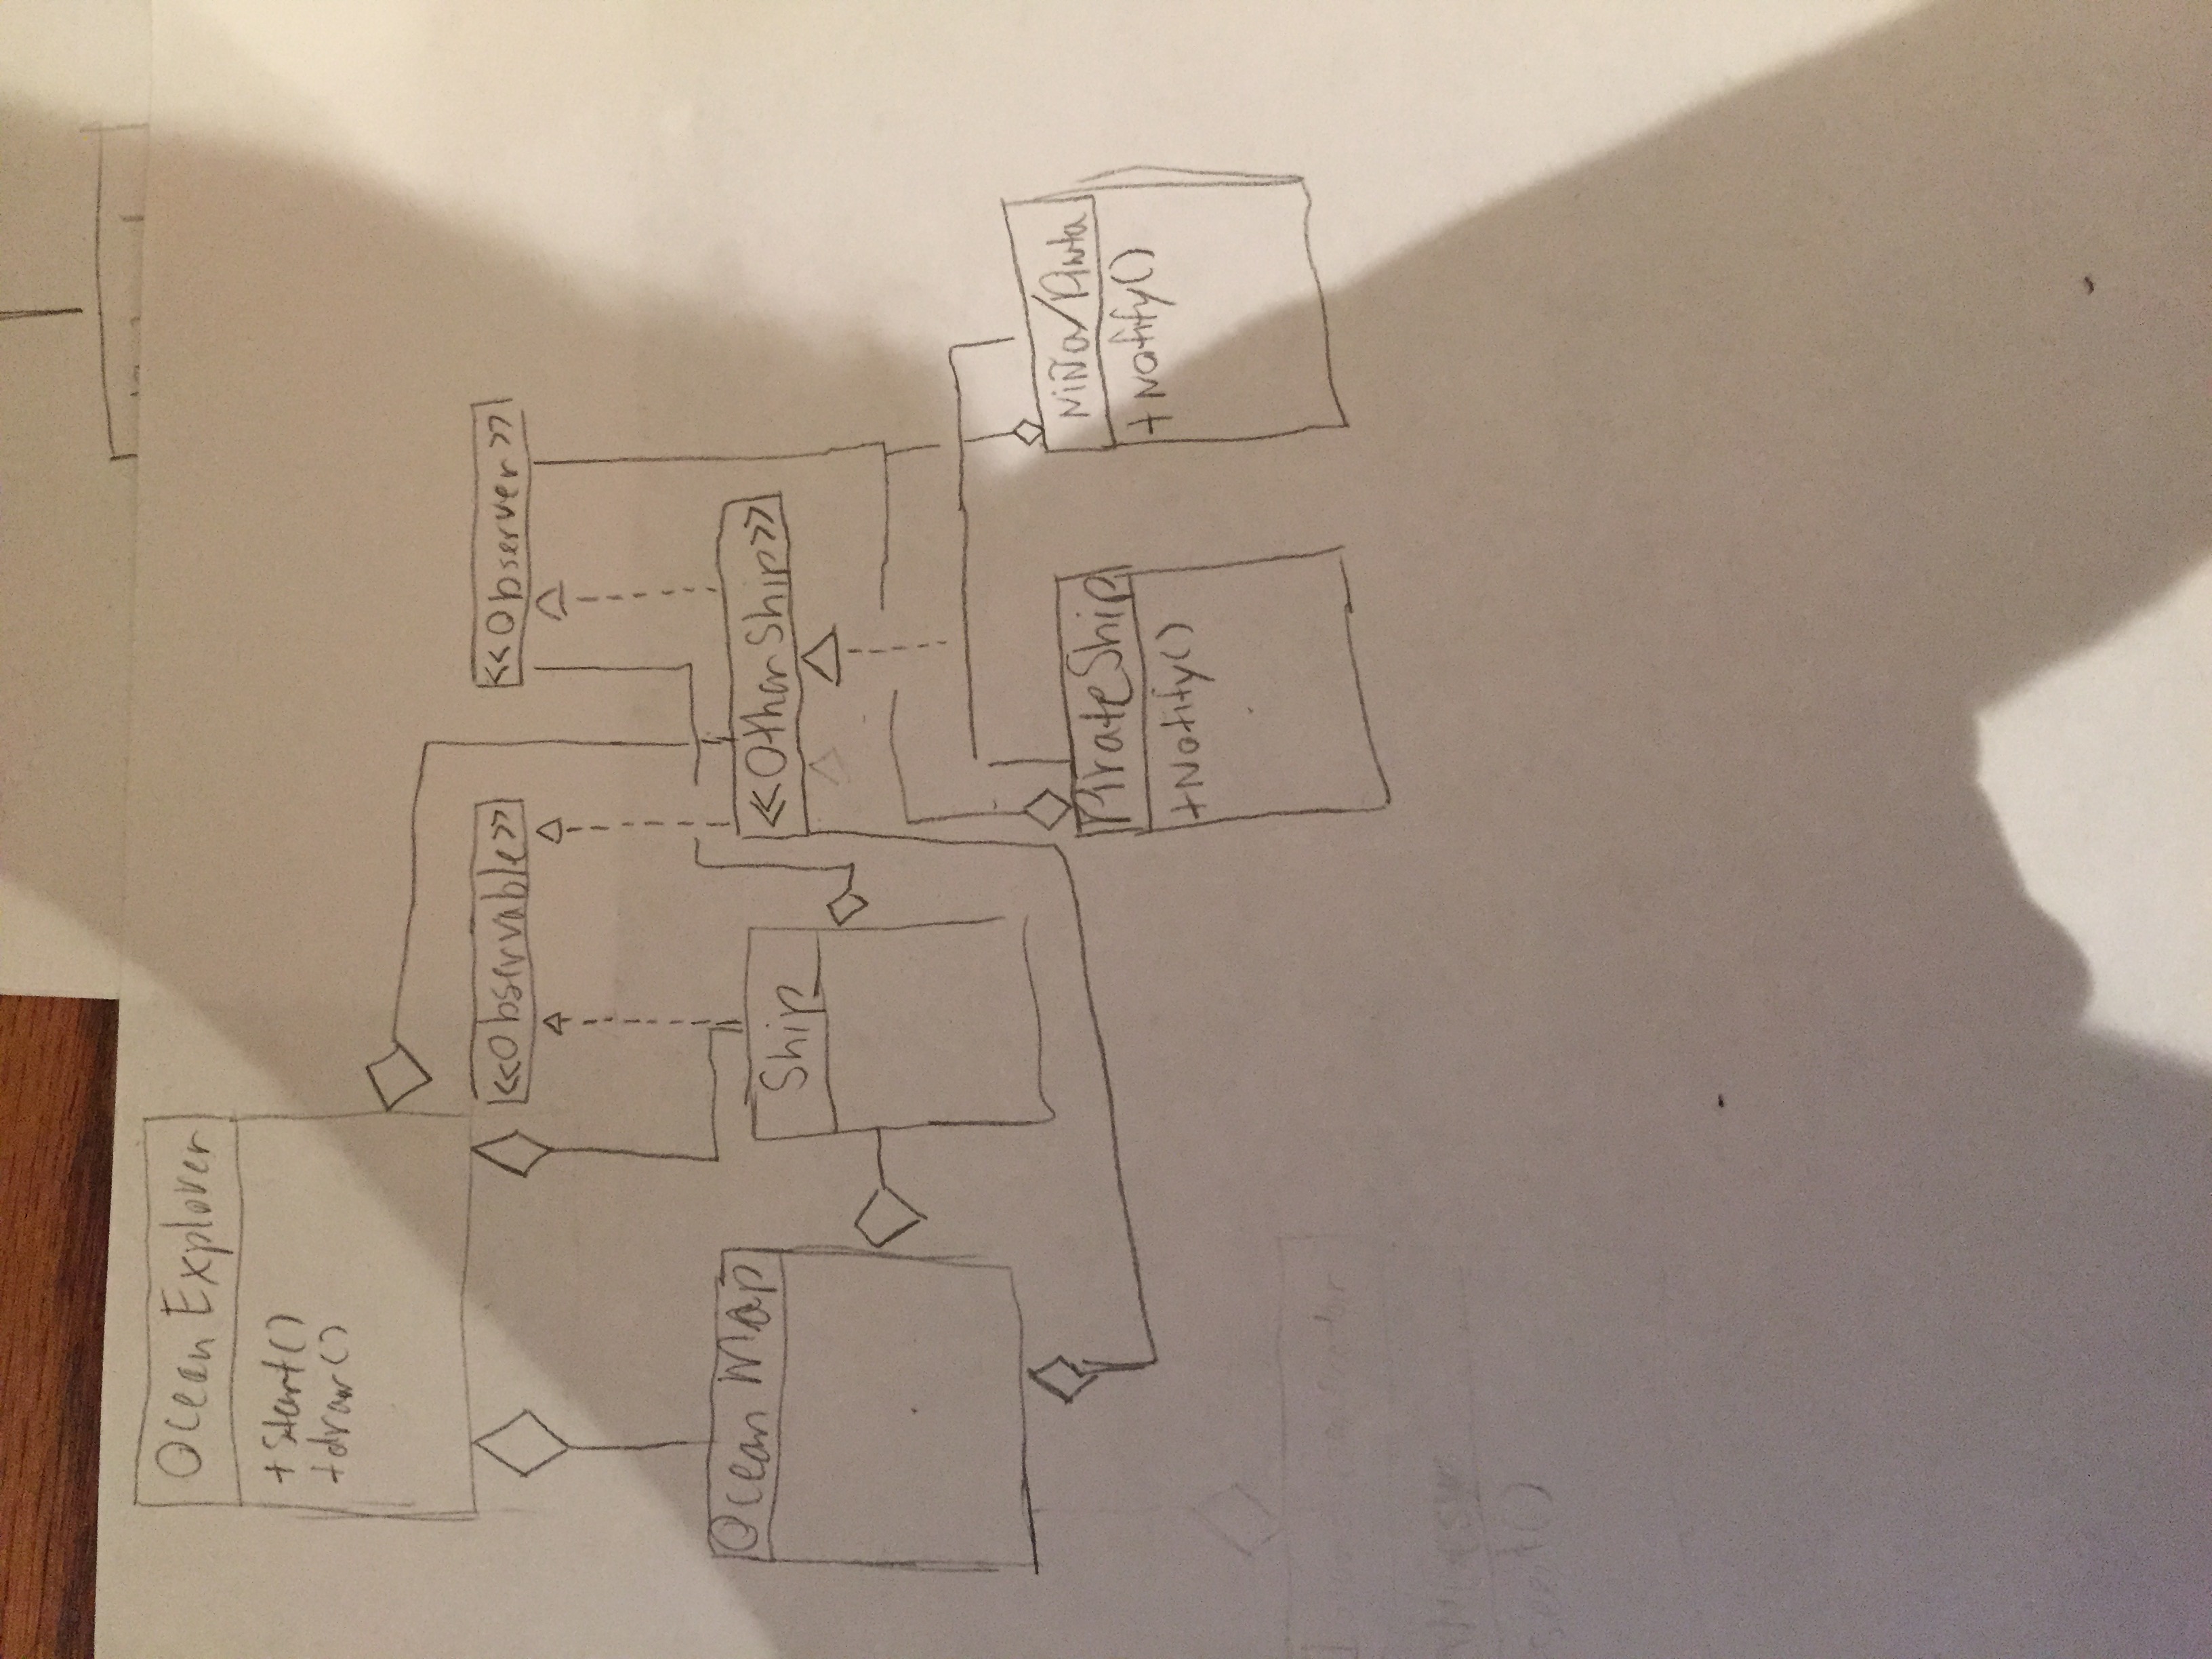 Ocean Explorer
+Start()
+draw()
<<Observable>>
<<Observer>>
Ocean Map
Ship
<<OtherShip>>
PirateShip
+Notify()
Niña/Pinta
+Notify()